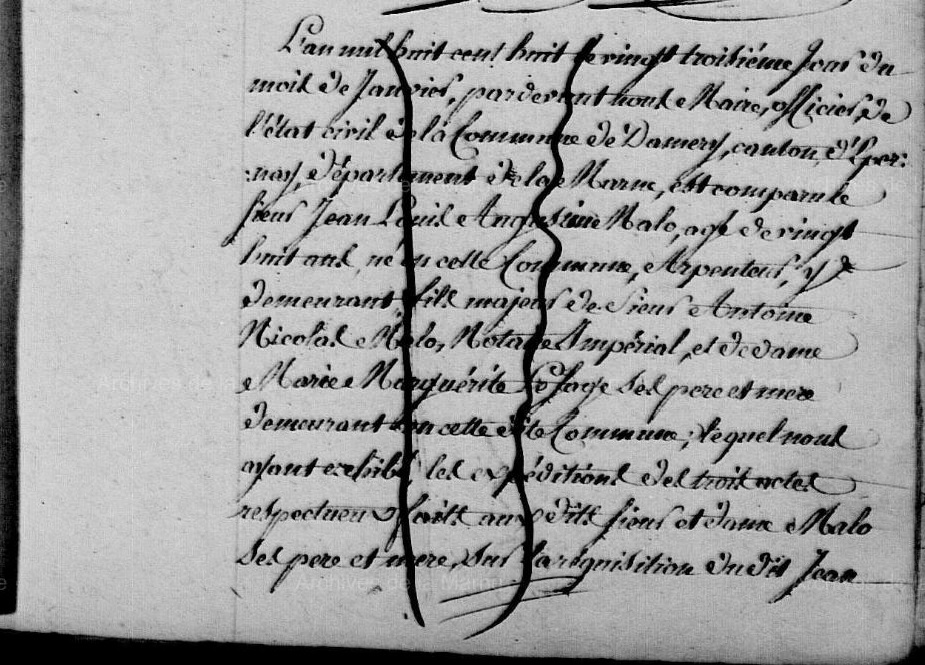 L'an mil huit cent huit le vingt troisiéme Jour du
mois de Janvier, pardevant nous Maire, officier de
l'état civil de la Commune de Damery, canton d'Eper:
:nay, département de la Marne, est comparu le
sieur Jean Louis Augustime Malo, agé de vingt
huit ans, né en cette Commune, Arpenteur, y
demeurant, fils majeur de Sieur Antoine
Nicolas Malo, Notaire Impérial, et de dame
Marie Marguérite Lesage ses pere et mere
demeurant en cette dite Commune; lequel nous
ayant exhibé les expéditions des trois actes
respectueux faits aux dits sieur et dame Malo
ses pere et mere, sur la réquisition du dit Jean
Archives de la Marne